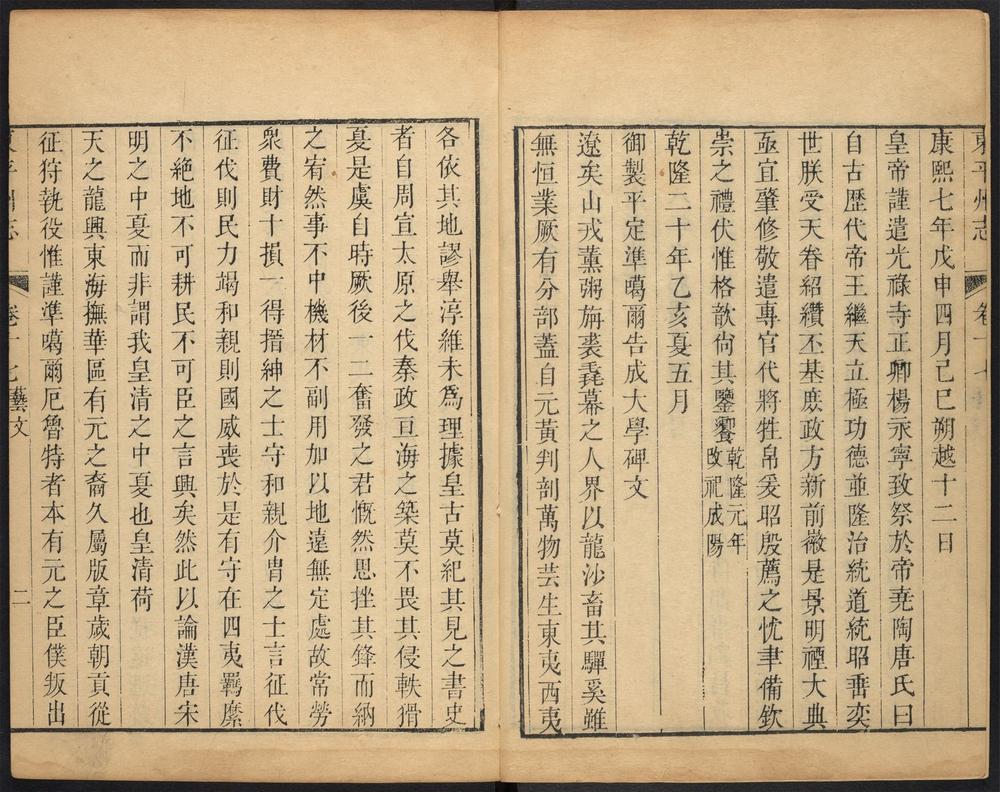 東平州志 卷十七
康熙七年戊申四月己巳朔越十二日
皇帝謹遣光祿寺正卿楊永寧致祭於帝堯陶唐氏曰
自古歷代帝王繼天立極功德並隆治統道統昭垂奕
世朕受天眷紹纘丕基庶政方新前徽是景明禋大典
亟宜肇修敬遣專官代將牲帛爰昭殷薦之忱聿備欽
崇之禮伏惟格歆尙其鑒饗乾隆元年改祀成陽
乾隆二十年乙亥夏五月
御製平定準噶爾告成大學碑文
遼矣山戎薰粥旃裘毳幕之人界以龍沙畜其驒奚雖
無恒業厥有分部蓋自元黃判剖萬物芸生東夷西夷
各依其地謬舉淳維未爲理據皇古莫紀其見之書史
者自周宣太原之伐秦政亘海之築莫不畏其侵軼猾
夏是虞自時厥後一二奮發之君慨然思挫其鋒而納
之宥然事不中機材不副用加以地遠無定處故常勞
衆費財十損一得搢紳之士守和親介冑之士言征伐
征伐則民力竭和親則國威喪於是有守在四夷羈縻
不絶地不可耕民不可臣之言興矣然此以論漢唐宋
明之中夏而非謂我皇清之中夏也皇清荷
天之龍興東海撫華區有元之裔久屬版章歲朝貢從
征狩執役惟謹準噶爾厄魯特者本有元之臣僕叛出
東平州志 卷十七藝文 二